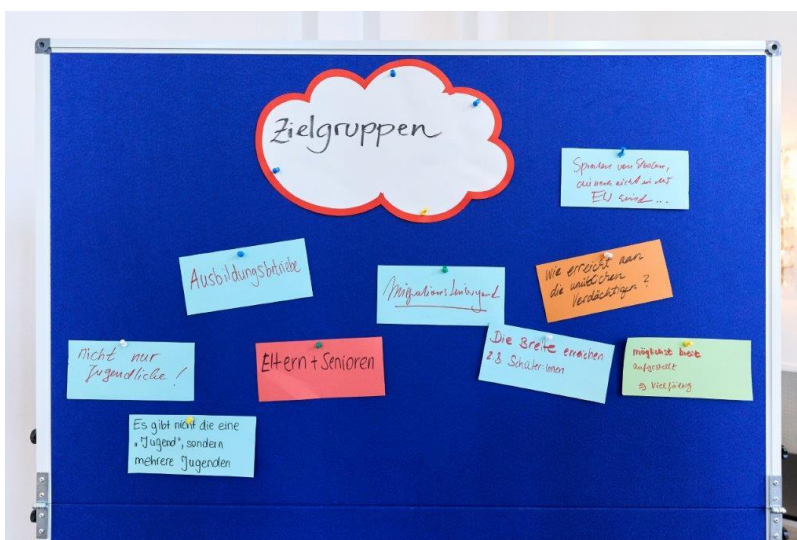 Zielgruppen
Sprachen von Staaten,
die noch nicht in der
EU sind ...
Ausbildungsbetriebe
Migrationshintergrund
Wie erreicht man
die unüblichen
Verdächtigen?
nicht nur
Jugendliche!
Eltern + Senioren
Die Breite erreichen
z.B. Schüler:innen
möglichst breit
aufgestellt
vielfältig
Es gibt nicht die eine
"Jugend", sondern
mehrere Jugenden